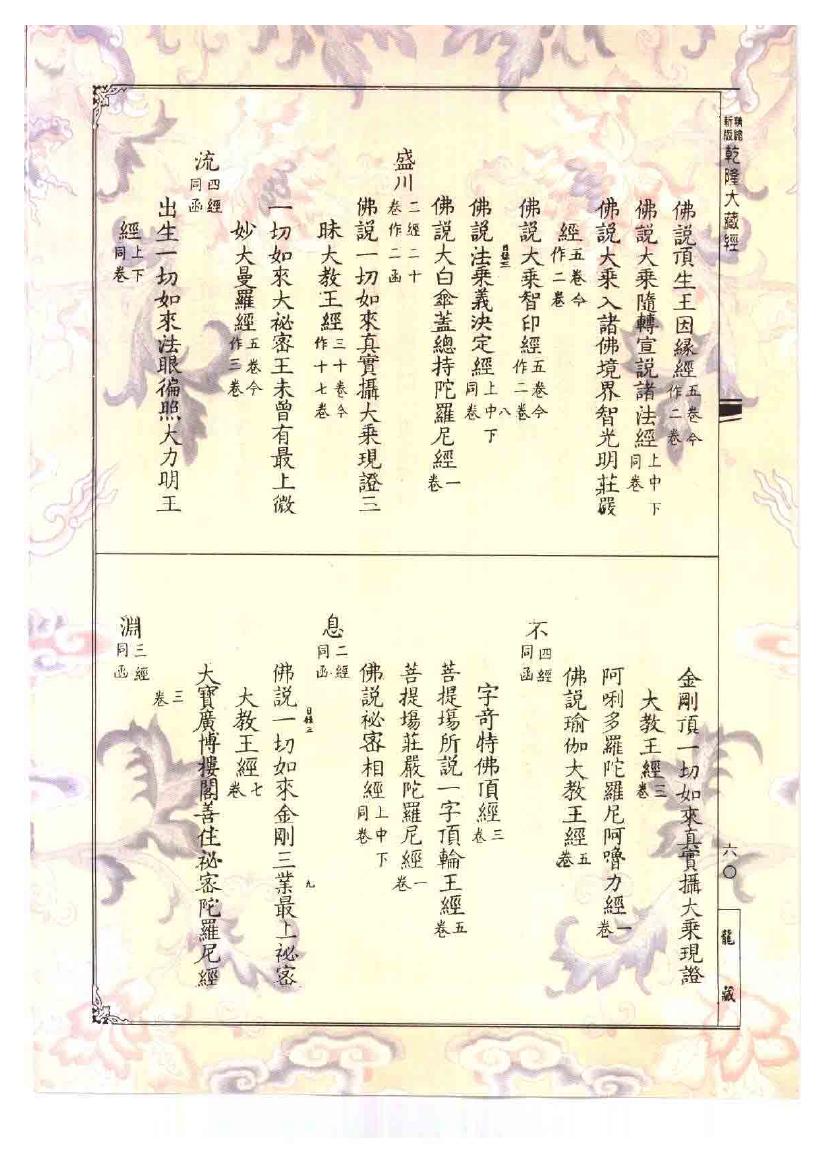 精縮
新版
乾隆大藏經
佛說頂生王因緣經五卷今作二卷
佛說大乘隨轉宣說諸法經上中下同卷
佛說大乘入諸佛境界智光明莊嚴
經五卷今作二卷
佛說大乘智印經五卷今作二卷
目錄三
八
佛說法乘義決定經上中下同卷
佛說大白傘蓋總持陀羅尼經一卷
盛川二經二十卷作二函
佛說一切如來真實攝大乘現證三
昧大教王經三十卷今作十七卷
一切如來大祕密王未曾有最上微
妙大曼羅經五卷今作三卷
流四經同函
出生一切如來法眼徧照大力明王
經上下同卷
金剛頂一切如來真實攝大乘現證
大教王經三卷
阿唎多羅陀羅尼阿嚕力經一卷
佛說瑜伽大教王經五卷
不四經同函
字奇特佛頂經三卷
菩提場所說一字頂輪王經五卷
菩提場莊嚴陀羅尼經一卷
佛說祕密相經上中下同卷
息二經同函
目錄三
九
佛說一切如來金剛三業最上祕密
大教王經七卷
大寶廣博樓閣善住祕密陀羅尼經
三卷
淵三經同函
六〇
龍藏